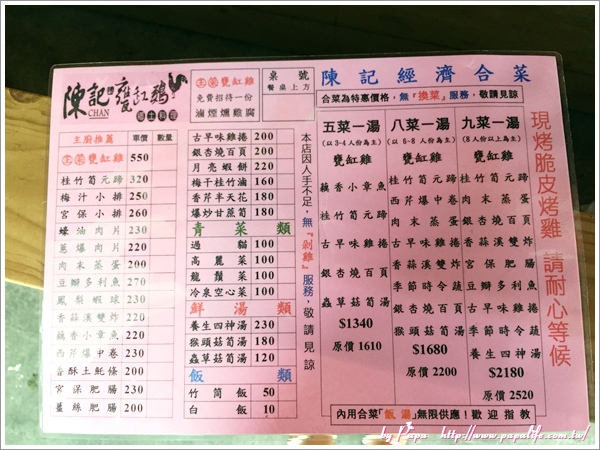 陳記甕缸雞
CHAN
鄉土料理
主廚推薦 單價 數量
主菜 甕缸雞 550
桂竹筍元蹄 320
梅汁小排 250
宮保小排 260
蠔油肉片 230
蔥爆肉片 220
肉末蒸蛋 200
豆瓣多利魚 220
鳳梨蝦球 230
香菇溪雙炸 220
藕香小章魚 220
西芹爆中卷 230
香酥土魠條 200
宮保肥腸 220
薑絲肥腸 200
主菜 甕缸雞
免費招待一份
滷煙燻雞腐
桌號
餐桌上方
古早味雞捲 200
銀杏燒百頁 200
月亮蝦餅 220
梅干桂竹滷 160
香芹半天花 180
爆炒甘蔗筍 180
青菜類
過貓 100
高麗菜 100
龍鬚菜 100
冷泉空心菜 100
鮮湯類
養生四神湯 230
猴頭菇筍湯 180
蟲草菇筍湯 180
飯類
竹筒飯 50
白飯 10
本店因人手不足，無『剁雞』服務，敬請見諒
陳記經濟合菜
合菜為特惠價格，無『換菜』服務，敬請見諒
五菜一湯
(以 3-4 人份為主)
甕缸雞
藕香小章魚
桂竹筍元蹄
古早味雞捲
銀杏燒百頁
蟲草菇筍湯
$1340
原價 1610
八菜一湯
(以 6-8 人份為主)
甕缸雞
桂竹筍元蹄
西芹爆中卷
肉末蒸蛋
古早味雞捲
香菇溪雙炸
季節時令蔬
銀杏燒百頁
猴頭菇筍湯
$1680
原價 2200
九菜一湯
(8 人份以上為主)
甕缸雞
藕香小章魚
桂竹筍元蹄
肉末蒸蛋
香菇溪雙炸
宮保肥腸
豆瓣多利魚
古早味雞捲
季節時令蔬
養生四神湯
$2180
原價 2520
內用合菜『飯湯』無限供應！歡迎指教
現烤脆皮烤雞 請耐心等候
by Papa http://www.papalife.com.tw/